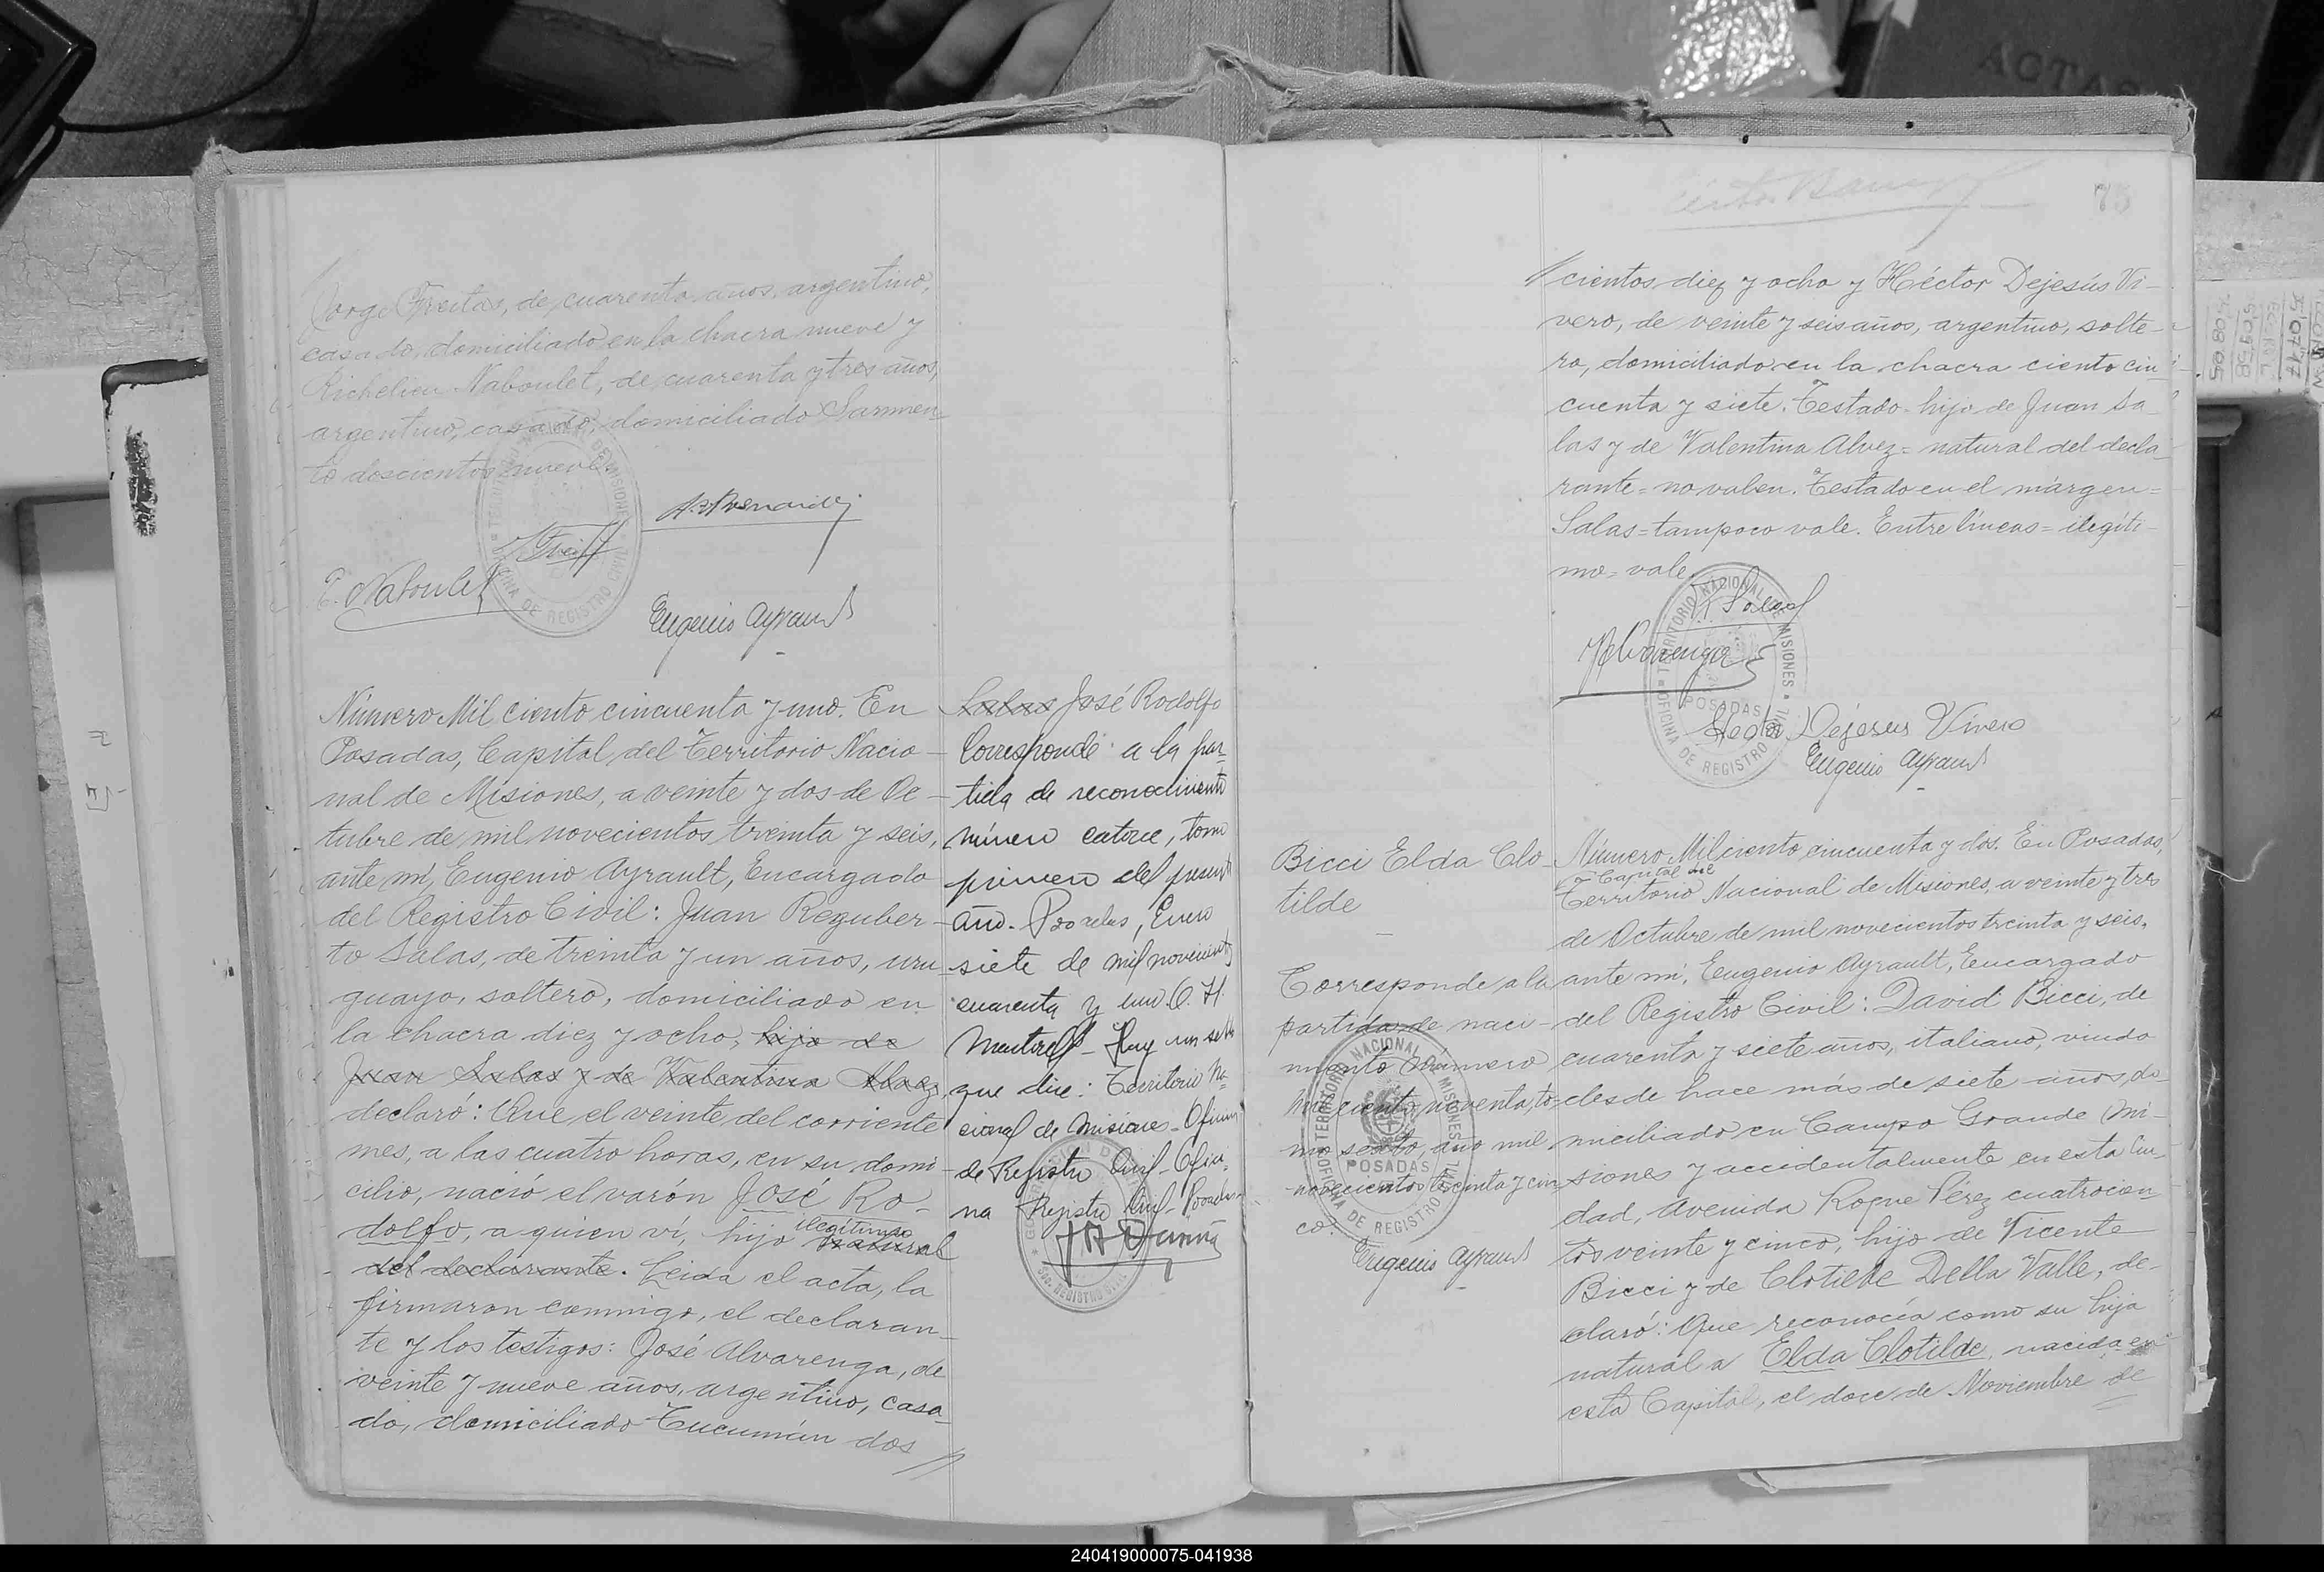 Jorge Freitas, de cuarenta años, argentino,
casado, domiciliado en la chacra nueve y
Richelieu Naboulet, de cuarenta y tres años,
argentino, casado, domiciliado Sarmien-
to doscientos nueve.
R. Naboulet
Eugenio Ayrault
Número Mil ciento cincuenta y uno. En
Posadas, Capital del Territorio Nacio-
nal de Misiones, a veinte y dos de Oc-
tubre de mil novecientos treinta y seis,
ante mí, Eugenio Ayrault, Encargado
del Registro Civil: Juan Reguber-
to Salas, de treinta y un años, uru-
guayo, soltero, domiciliado en
la chacra diez y ocho, hijo de
Juan Salas y de Valentina Alvez,
declaró: Que el veinte del corriente
mes, a las cuatro horas, en su domi-
cilio, nació el varón José Ro-
dolfo, a quien ví, hijo ilegítimo natural
del declarante. Leida el acta, la
firmaron conmigo, el declaran-
te y los testigos: José Alvarenga, de
veinte y nueve años, argentino, casa-
do, domiciliado Tucumán dos
//
Salas José Rodolfo
Corresponde a la par-
tida de reconocimiento
número catorce, tomo
primero del presente
año. Posadas, Enero
siete de mil novecientos
cuarenta y uno. C. H.
Martorell - Hay un sello
que dice: Territorio Na-
cional de Misiones - Oficina
de Registro Civil - Ofici-
na Registro Civil - Posadas -
75
// cientos diez y ocho y Héctor Dejesús Vi-
vero, de veinte y seis años, argentino, solte-
ro, domiciliado en la chacra ciento cin-
cuenta y siete. Testado = hijo de Juan Sa-
las y de Valentina Alvez = natural del decla-
rante = no valen. Testado en el márgen =
Salas = tampoco vale. Entre líneas = ilegíti-
mo = vale.
TERRITORIO NACIONAL DE MISIONES
POSADAS
OFICINA DE REGISTRO CIVIL
J. Salas
JAlvarenga
Hector Dejesus Vivero
Eugenio Ayrault
Bicci Elda Clo-
tilde
Corresponde a la
partida de naci-
miento número
mil ciento noventa, to-
mo sexto, año mil
novecientos treinta y cin-
co.
TERRITORIO NACIONAL DE MISIONES
POSADAS
OFICINA DE REGISTRO CIVIL
Eugenio Ayrault
Número Mil ciento cincuenta y dos. En Posadas,
Capital del
Territorio Nacional de Misiones, a veinte y tres
de Octubre de mil novecientos treinta y seis,
ante mí, Eugenio Ayrault, Encargado
del Registro Civil: David Bicci, de
cuarenta y siete años, italiano, viudo
desde hace más de siete años, do-
miciliado en Campo Grande (Mi-
siones y accidentalmente en esta Ciu-
dad, Avenida Roque Pérez cuatrocien-
tos veinte y cinco, hijo de Vicente
Bicci y de Clotilde Della Valle, de-
claró: Que reconocía como su hija
natural a Elda Clotilde, nacida en
esta Capital, el doce de Noviembre de
240419000075-041938